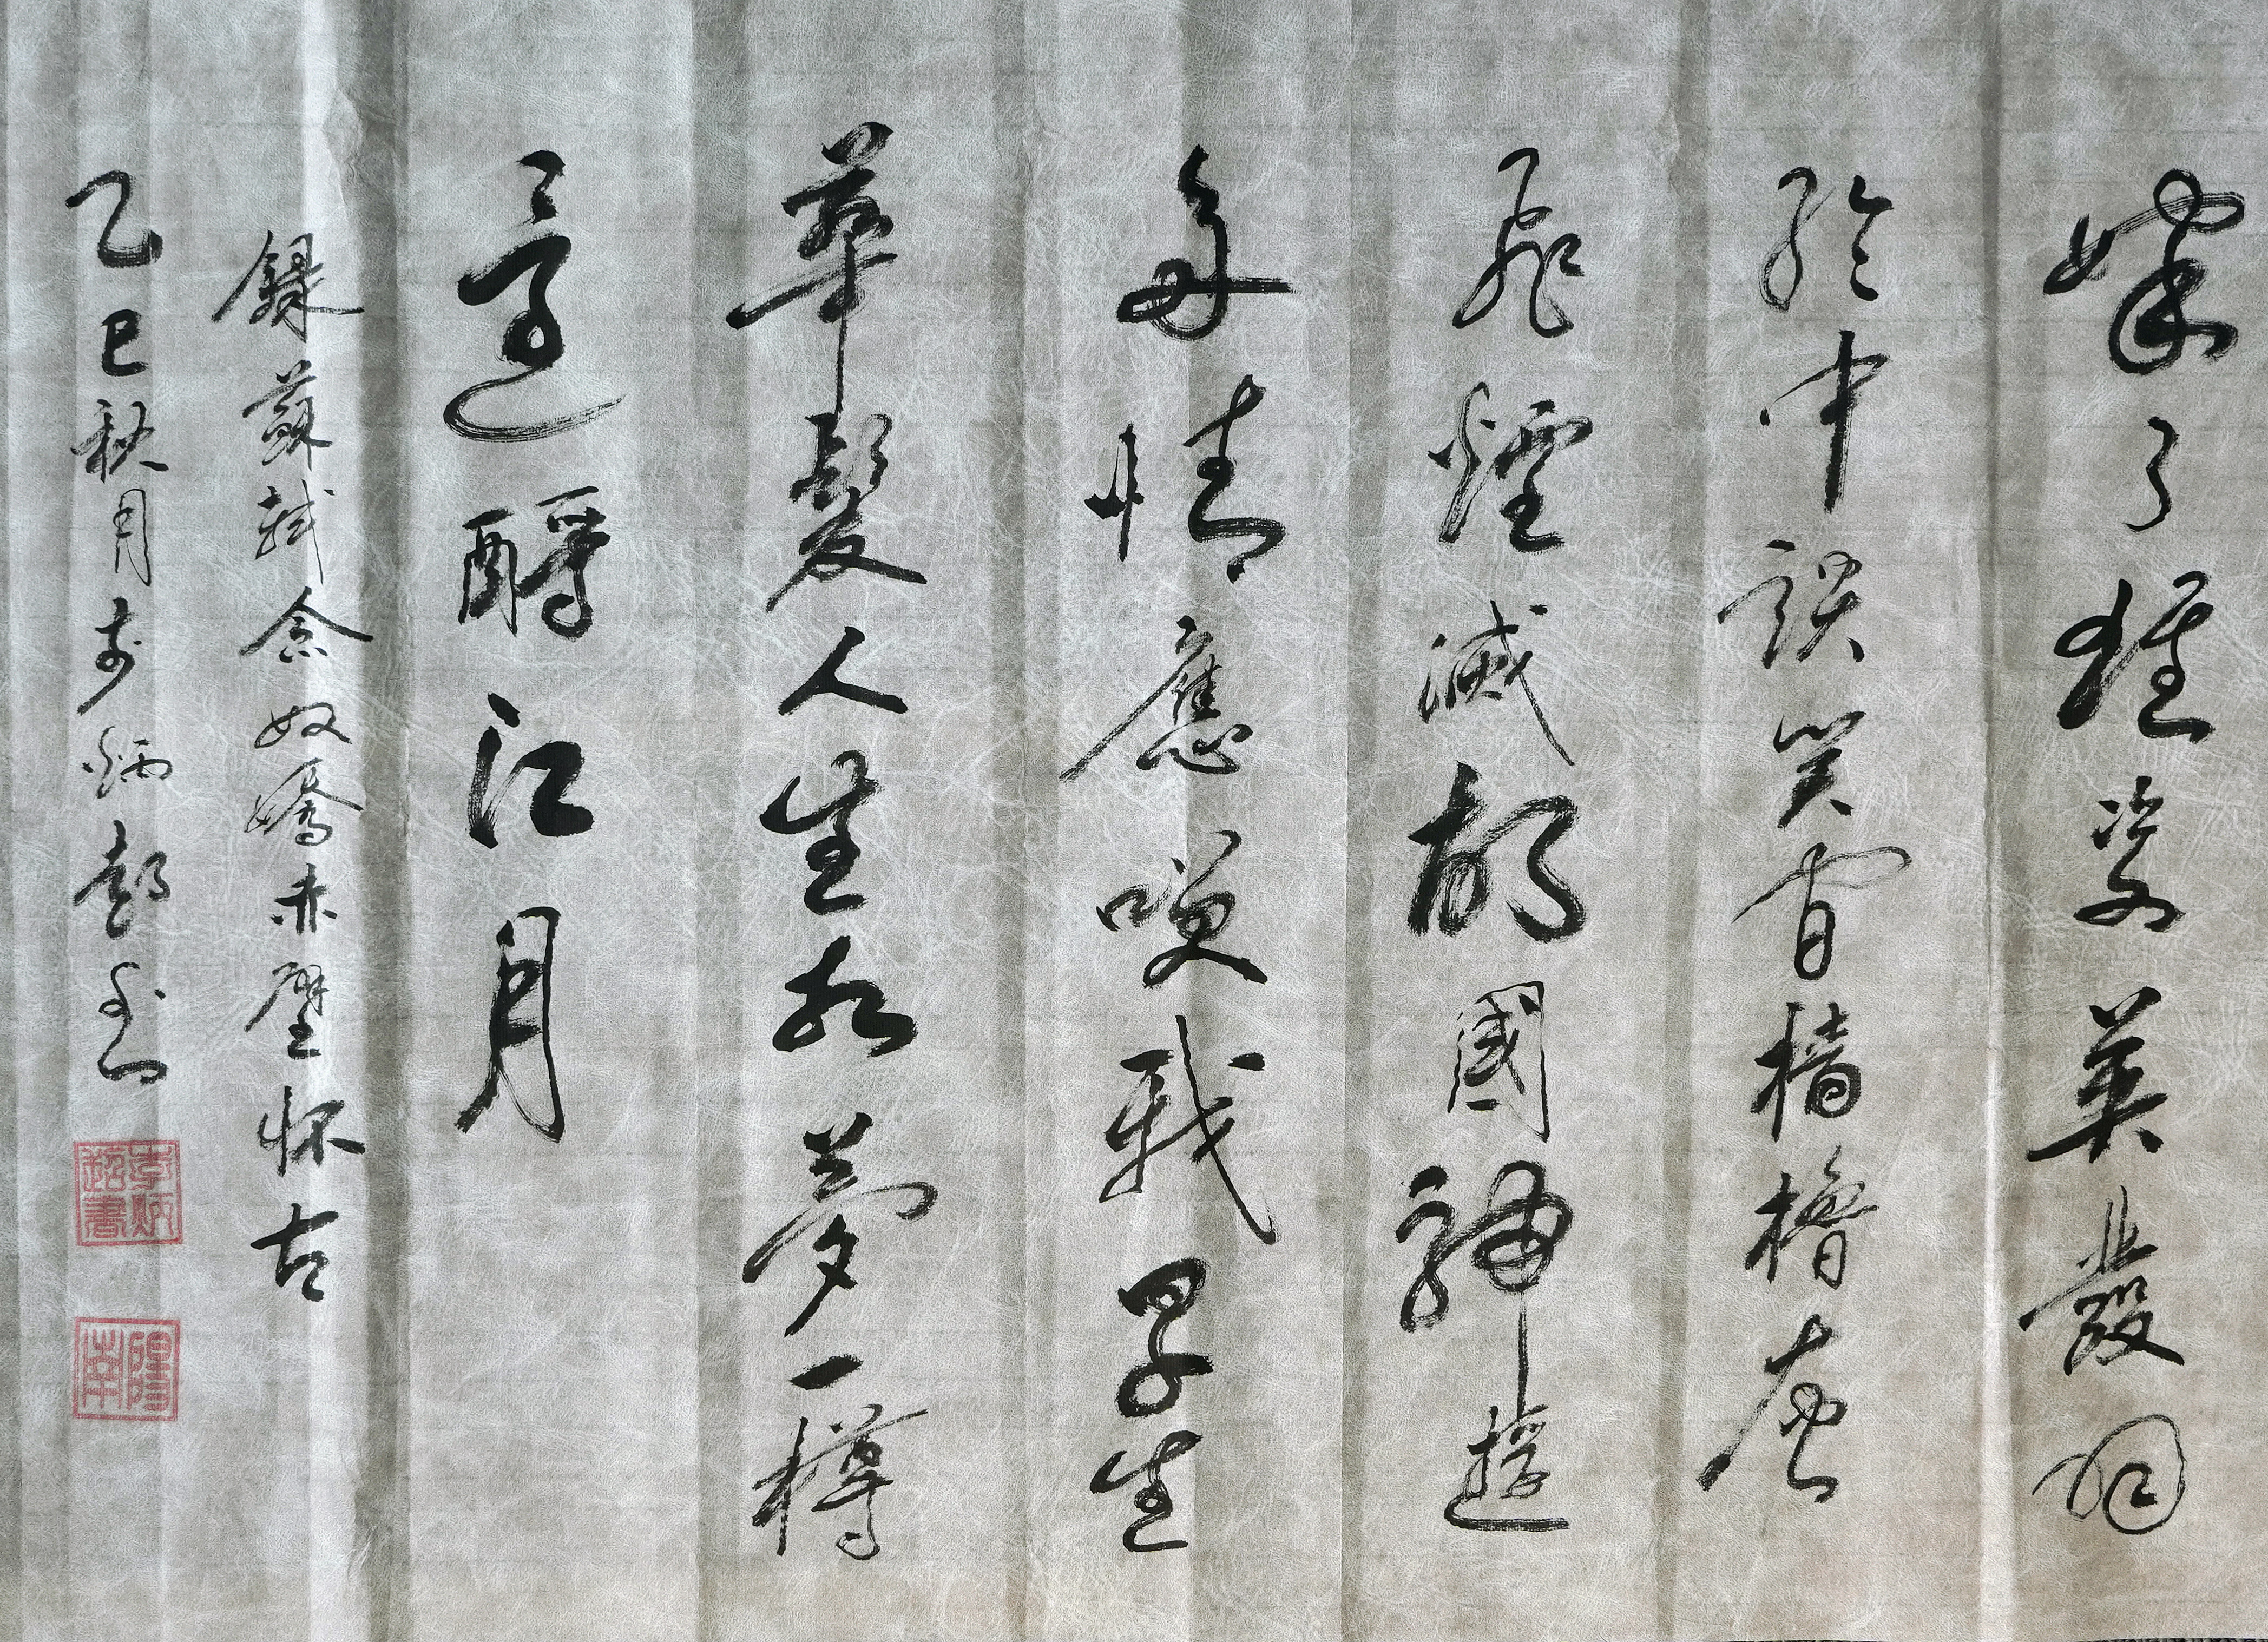 嫁了雄姿英發羽
綸巾談笑間檣櫓灰
飛煙滅故國神遊
多情應咲我早生
華髮人生如夢一樽
還酹江月
錄蘇軾念奴嬌赤壁怀古
乙巳秋月 炳